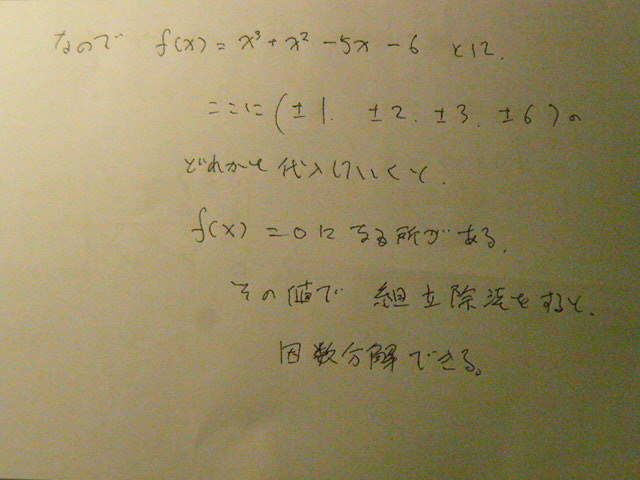 なので f(x) = x³ + x² - 5x - 6 とは.
ここに (±1. ±2. ±3. ±6) の
どれかを 代入していくと.
f(x) = 0 に なる所が ある.
その値で 組立除法をすると.
因数分解できる。